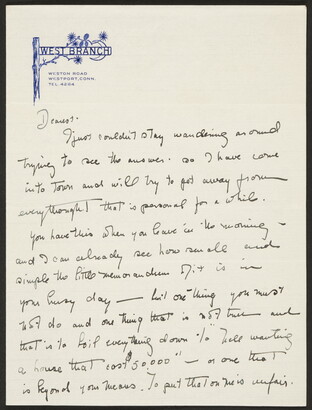 WEST BRANCH
WESTON ROAD
WESTPORT, CONN.
TEL. 4254
Dearest.
I just couldn't stay wandering around
trying to see the answer. so I have come
into town and will try to put away from
everything that is personal for a while.
You have this when you leave in the morning –
and I can already see how small and
simple the little memorandum of it is in
your busy day — but one thing you must
not do and one thing that is not true and
that is to boil everything down to "Nell wanting
a house that cost $50000" – or one that
is beyond your means. To put that on me is unfair.